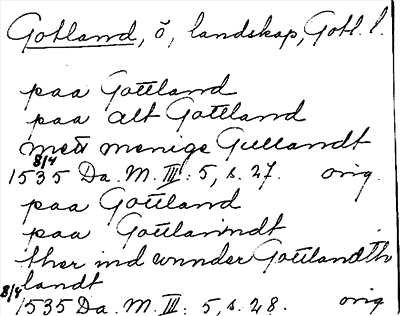 Gotland, ö, landskap, Gotl. l.
paa Gottland
paa alt Gottland
mett menige Gullandt
8/4
1535 Da. M. III: 5, s. 27. orig.
paa Gottland
paa Gottlanndt
ther ind wnnder Gottlandth
landt
8/4
1535 Da. M. III: 5, s. 28. orig